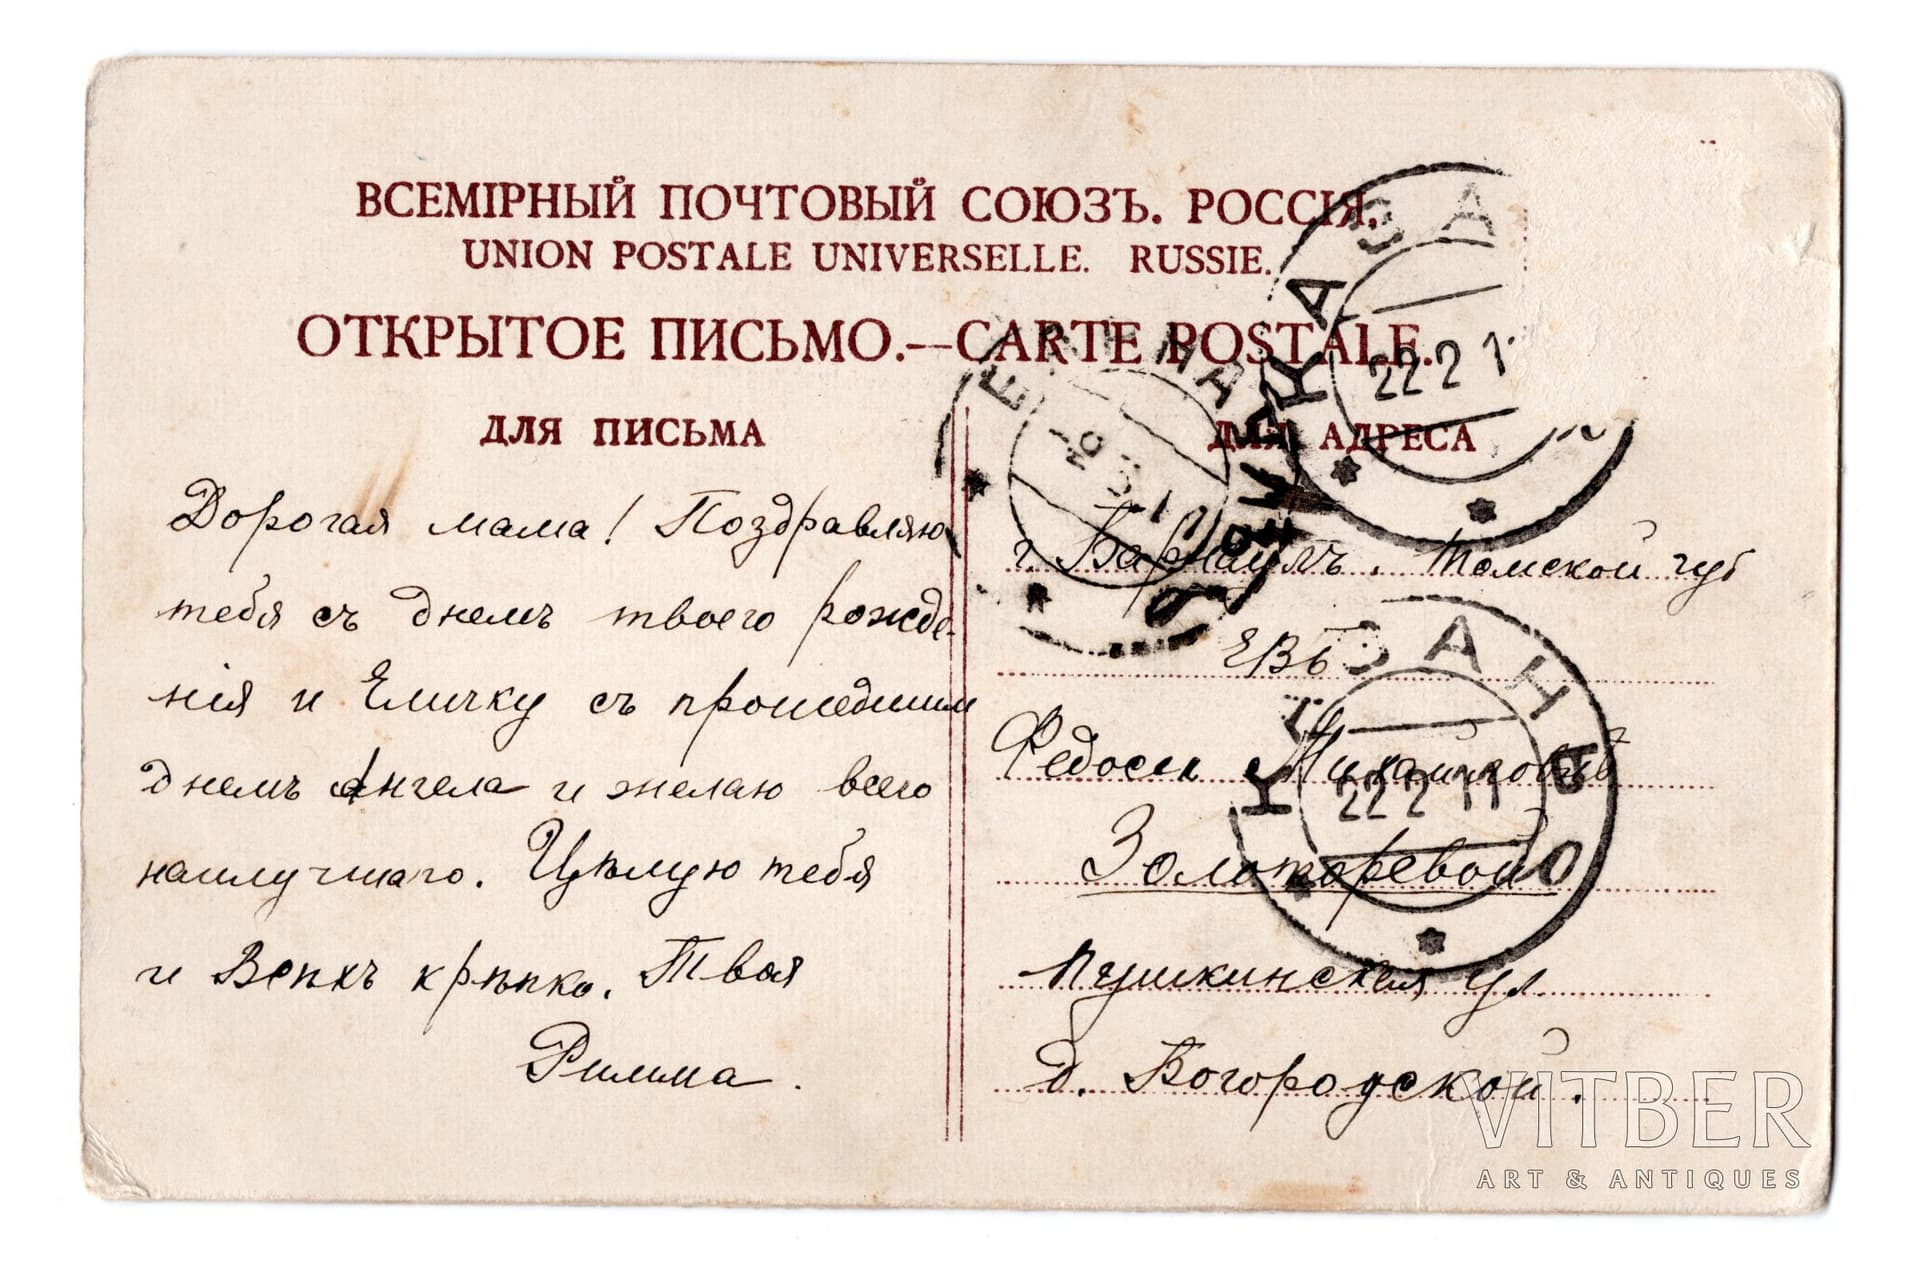 ВСЕМІРНЫЙ ПОЧТОВЫЙ СОЮЗЪ. РОССІЯ.
UNION POSTALE UNIVERSELLE. RUSSIE.
ОТКРЫТОЕ ПИСЬМО.—CARTE POSTALE.
ДЛЯ ПИСЬМА
Дорогая мама! Поздравляю
тебя съ днемъ твоего рожде-
нія и Еличку съ прошедшим
днемъ Ангела и желаю всего
наилучшаго. Цѣлую тебя
и Всѣхъ крѣпко. Твоя
Римма.
ДЛЯ АДРЕСА
г. Барнаулъ. Томской губ
ЕВБ
Федосіи Михайловнѣ
Золотаревой
Пушкинская ул.
д. Богородской.
КАЗА
22 2 1
КАЗАНЬ
22 2 11
VITBER
ART & ANTIQUES